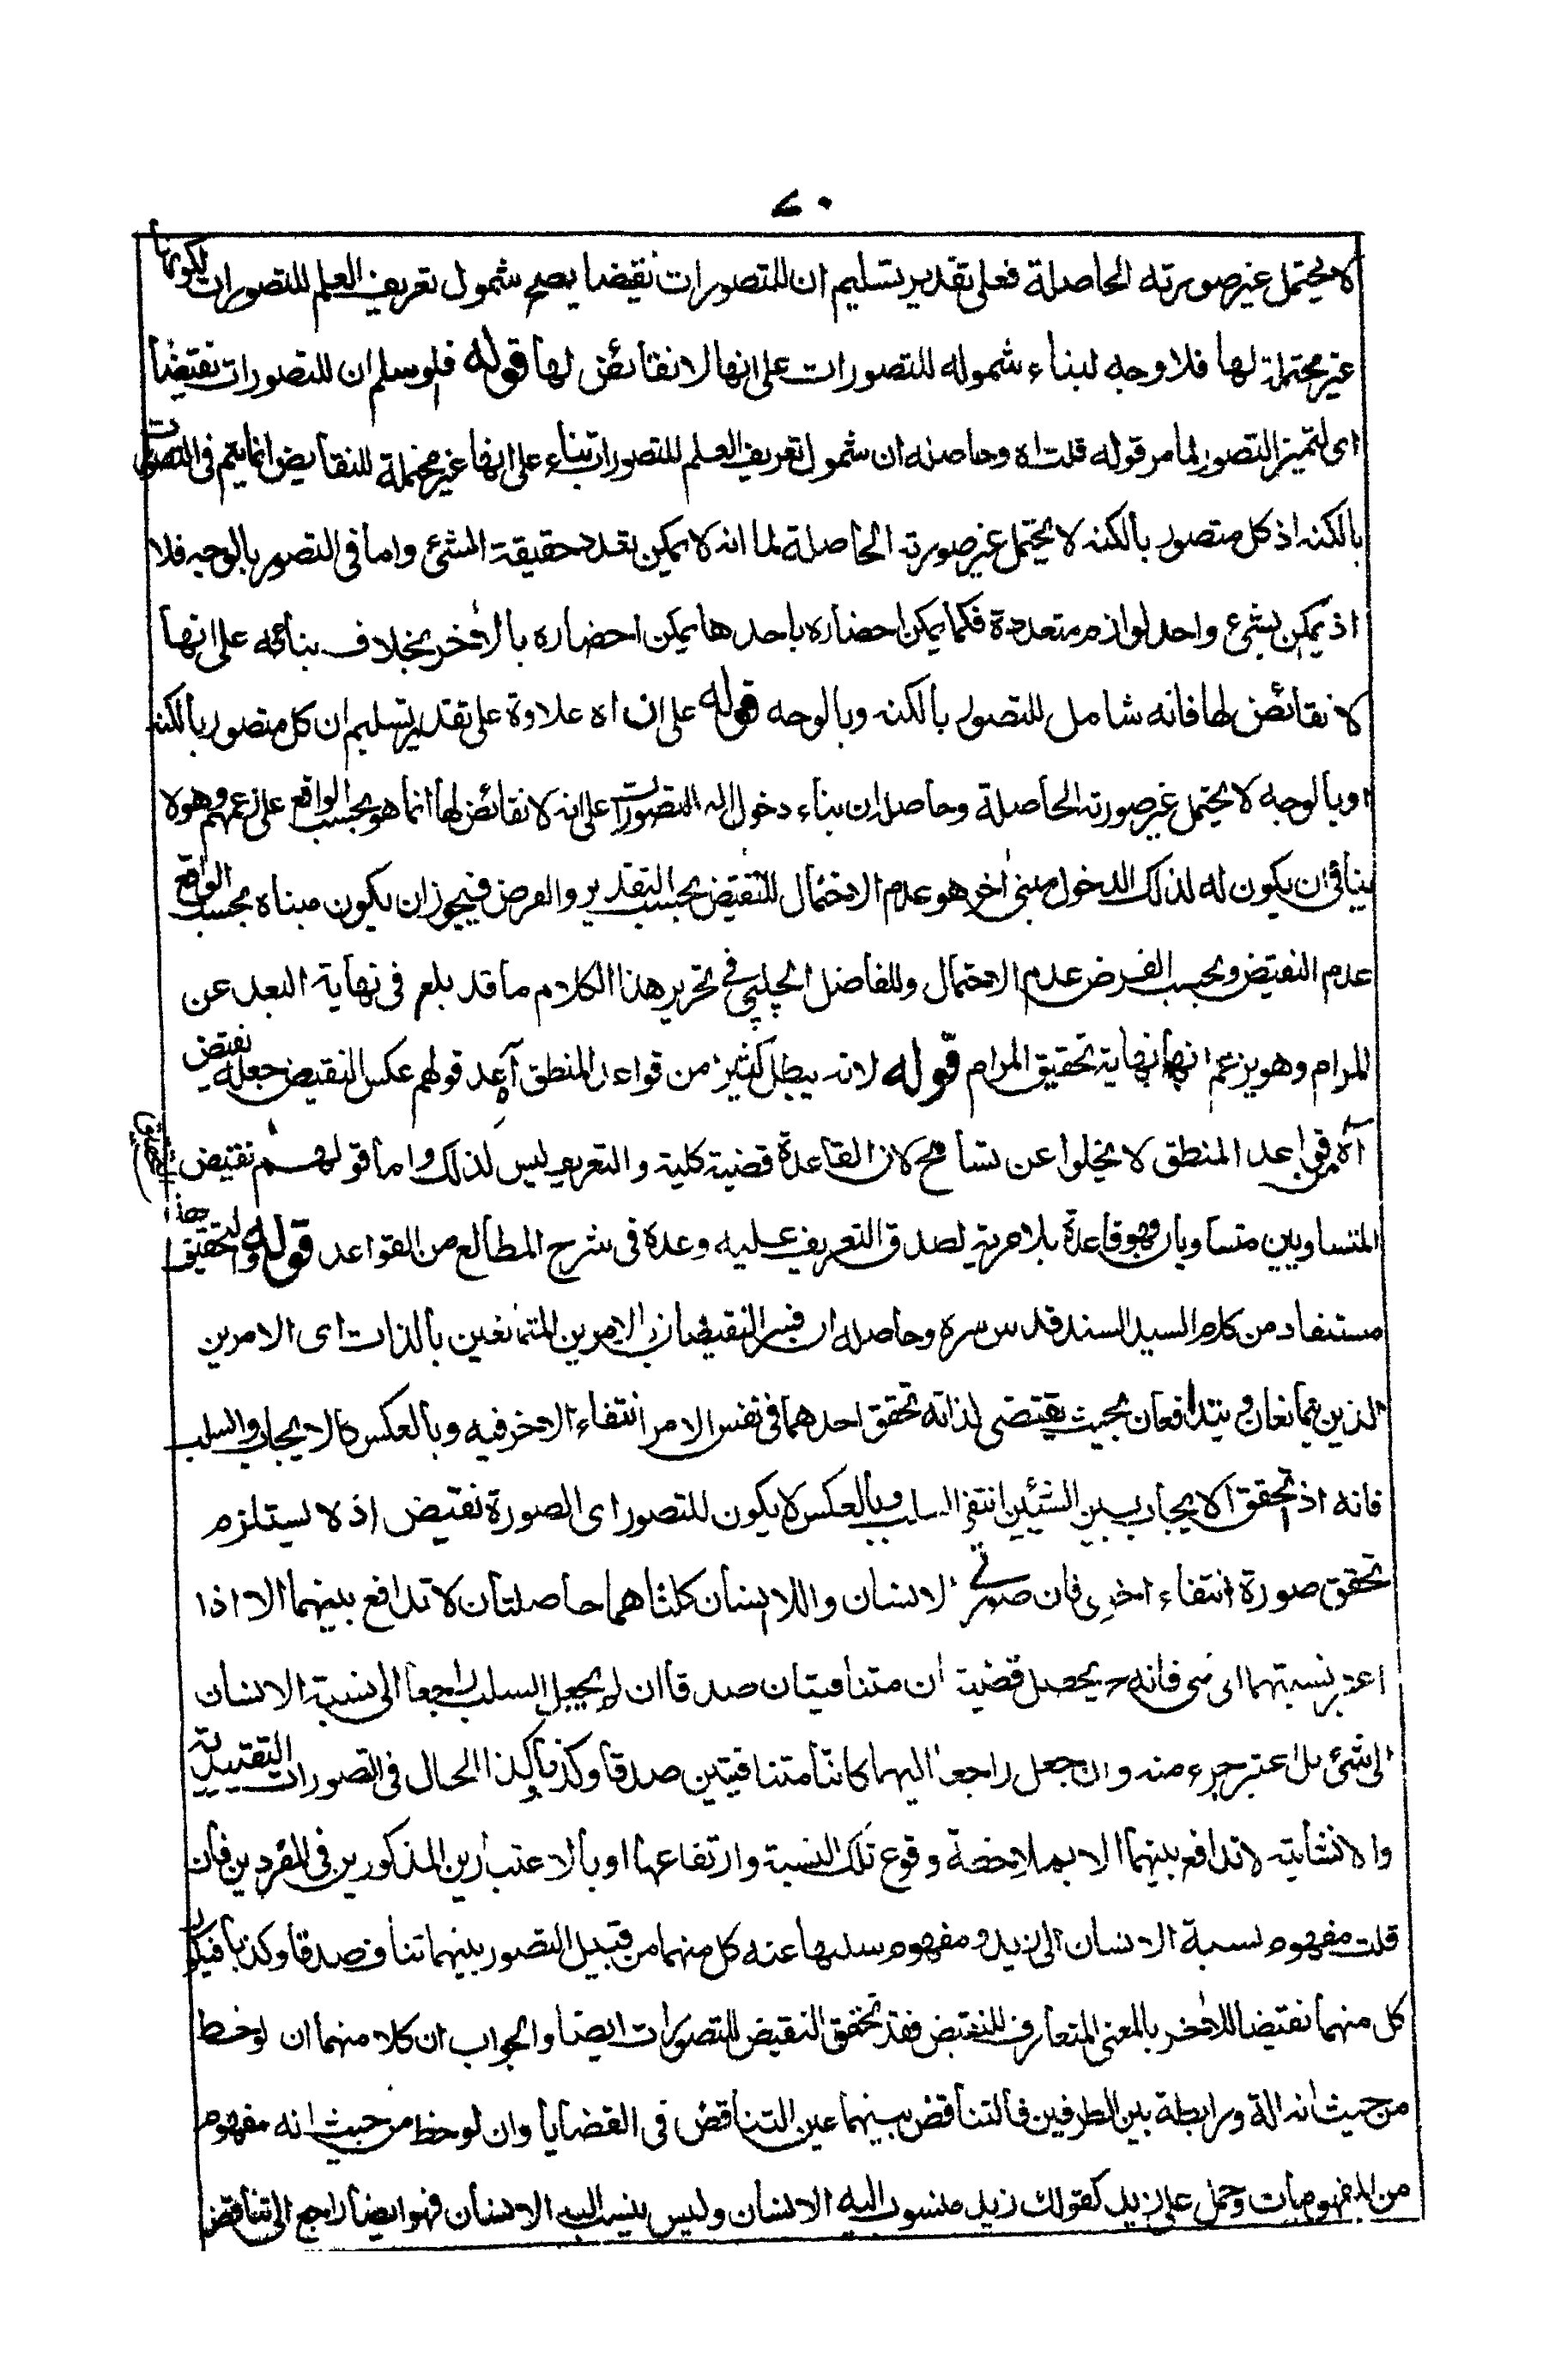 ٧٠
لا يحتمل غير صورته الحاصلة فعلى تقدير تسليم ان للتصورات نقيضا يصح شمول تعريف العلم للتصورات لكونها
غير محتملة لها فلا وجه لبناء شموله للتصورات على انها لا نقائض لها قوله فلو سلم ان للتصورات نقيضا
اى لتميز التصور لما مر قوله قلت اه وحاصله ان شمول تعريف العلم للتصورات بناء على انها غير محتملة للنقايض انما يتم فى التصورات
بالكنه اذ كل متصور بالكنه لا يحتمل غير صورته الحاصلة لما انه لا يمكن تعدد حقيقة الشئ واما فى التصور بالوجه فلا
اذ يمكن لشئ واحد لوازم متعددة فكما يمكن احضاره باحدها يمكن احضاره بالآخر بخلاف بنائه على انها
لا نقائض لها فانه شامل للتصور بالكنه وبالوجه قوله على ان اه علاوة على تقدير تسليم ان كل متصور بالكنه
او بالوجه لا يحتمل غير صورته الحاصلة وحاصله ان بناء دخول التصورات على انه لا نقائض لها انما هو بحسب الواقع على زعمهم وهو لا
ينافى ان يكون له لذلك الدخول مبنى آخر هو عدم الاحتمال للنقيض بحسب التقدير والفرض فيجوز ان يكون مبناه بحسب الواقع
عدم النقيض وبحسب الفرض عدم الاحتمال وللفاضل الچلپى فى تحرير هذا الكلام ما قد بلغ فى نهاية البعد عن
المرام وهو يزعم انها نهاية تحقيق المرام قوله لانه يبطل كثيرا من قواعد المنطق آه عد قولهم عكس النقيض جعل نقيض
آه من قواعد المنطق لا يخلوا عن تسامح لان القاعدة قضية كلية والتعريف ليس لذلك واما قولهم نقيض
المتساويين متساويان فهو قاعدة بلا مرية لصدق التعريف عليه وعده فى شرح المطالع من القواعد قوله والتحقيق هذا
مستفاد من كلام السيد السند قدس سره وحاصله ان فسر النقيضان بالامرين المتمانعين بالذات اى الامرين
الذين يتمانعان ويتدافعان بحيث يقتضى لذاته تحقق احدهما فى نفس الامر انتفاء الآخر فيه وبالعكس كالايجاب والسلب
فانه اذا تحقق الايجاب بين الشيئين انتفى السلب وبالعكس لا يكون للتصور اى الصورة نقيض اذ لا يستلزم
تحقق صورة انتفاء اخرى فان صورتى الانسان واللا انسان كلتاهما حاصلتان لا تدافع بينهما الا اذا
اعتبر نسبتهما الى شئ فانه ح يحصل قضيتان متنافيتان صدقا ان لم يجعل السلب راجعا الى نسبة الانسان
الى شئ بل اعتبر جزء منه وان جعل راجعا اليها كانتا متنافيتين صدقا وكذبا وكذا الحال فى التصورات التقييدية
والانشائية لا تدافع بينهما الا بملاحظة وقوع تلك النسبة وارتفاعها او بالاعتبارين المذكورين فى المفردين فان
قلت مفهوم نسبة الانسان الى زيد ومفهوم سلبها عنه كل منهما من قبيل التصور بينهما تناف صدقا وكذبا فيكون
كل منهما نقيضا للآخر بالمعنى المتعارف للنقيض فقد تحقق النقيض للتصورات ايضا والجواب ان كلا منهما ان لوحظ
من حيث انه الة ورابطة بين الطرفين فالتناقض بينهما عين التناقض فى القضايا وان لوحظ من حيث انه مفهوم
من المفهومات وحمل على زيد كقولك زيد منسوب اليه الانسان وليس ينسب اليه الانسان فهو ايضا راجع الى تناقض